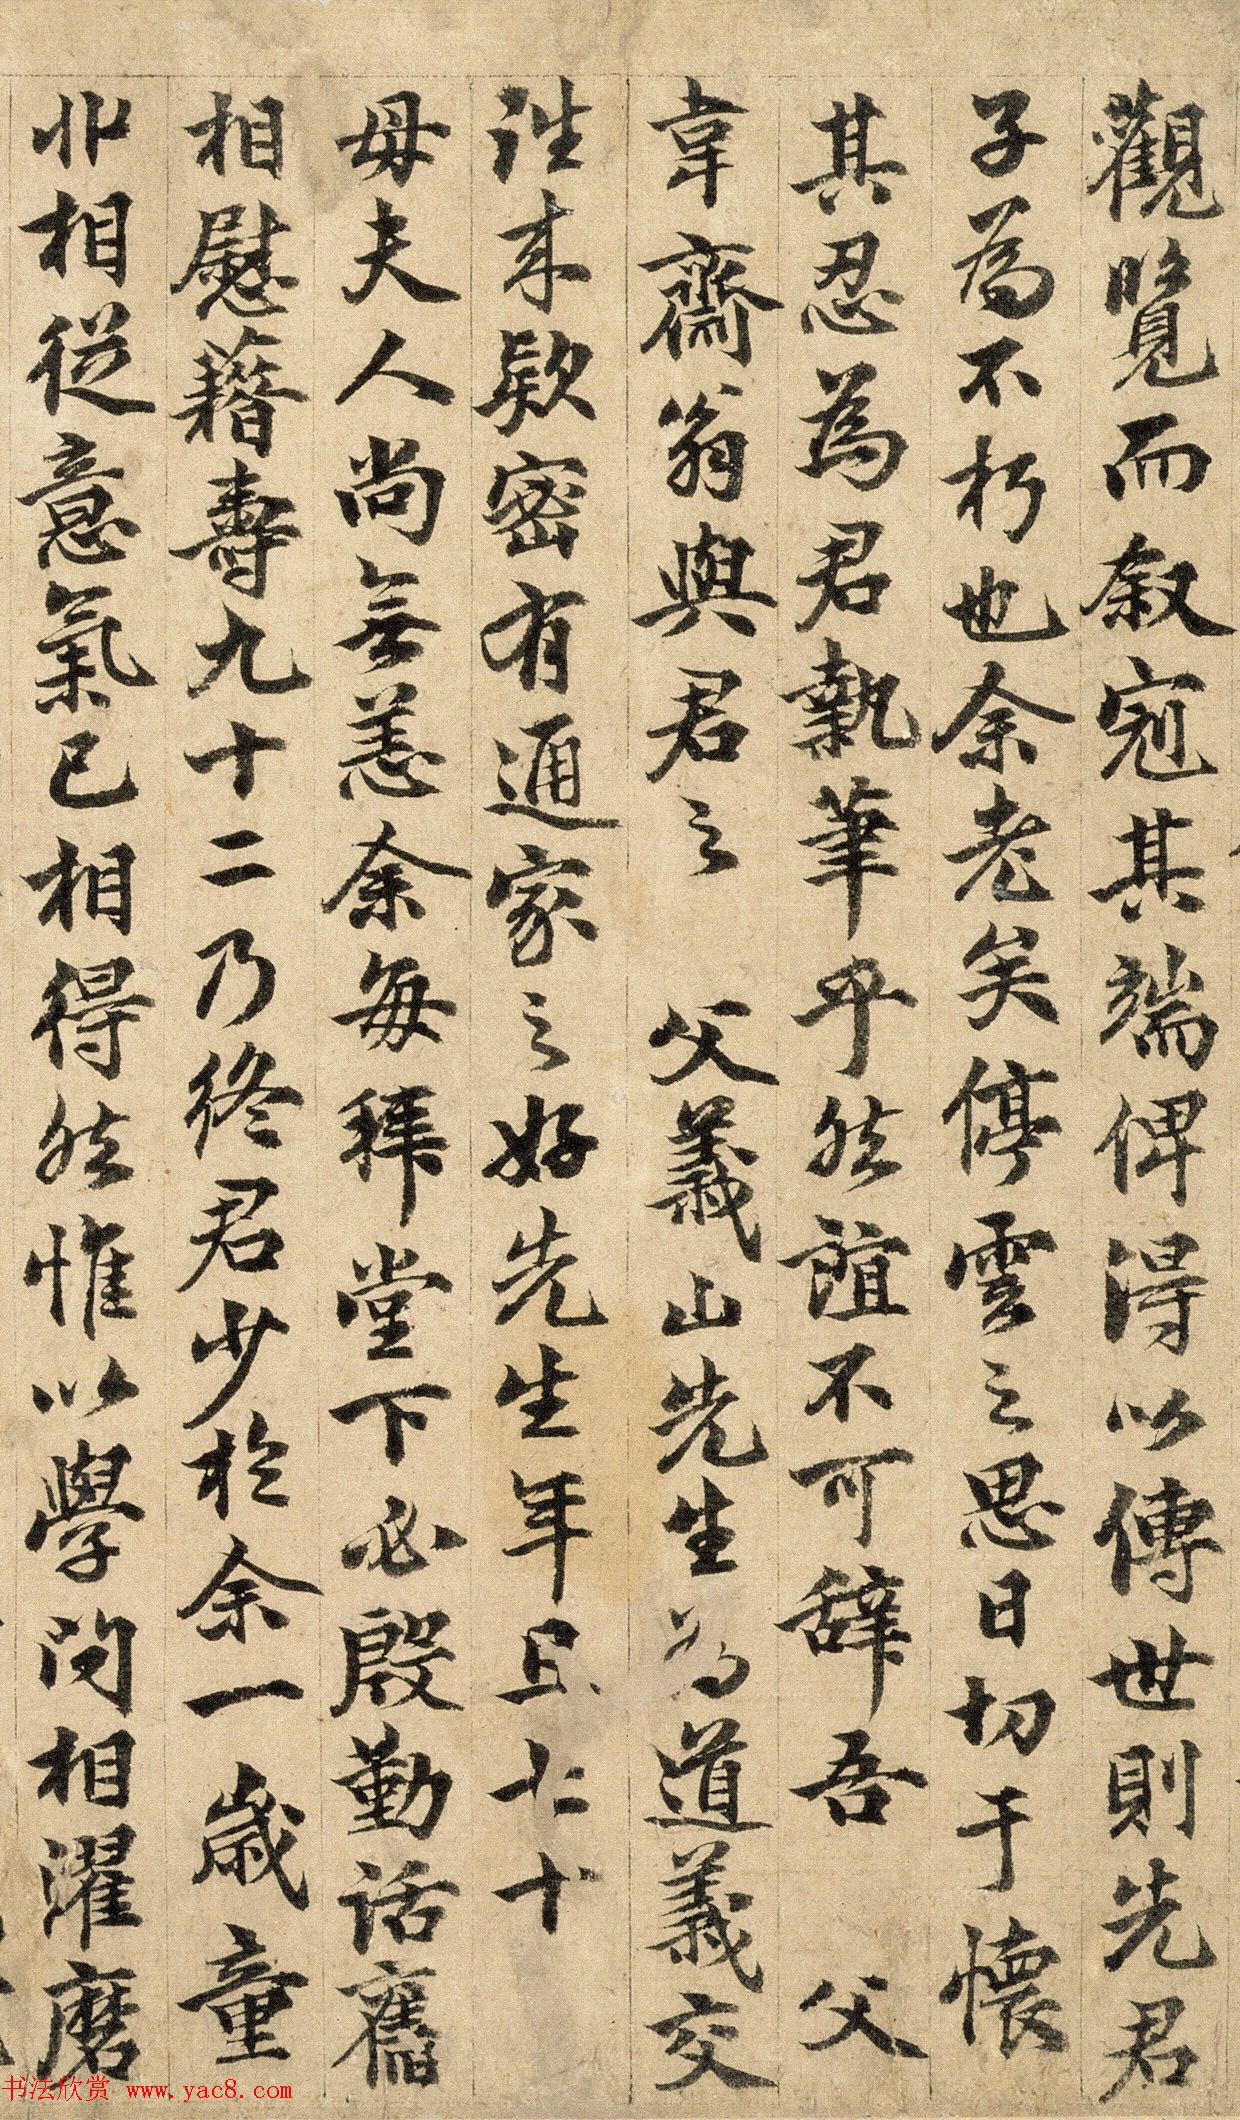 觀覽而叙冦其端俾得以傳世則先君
子為不朽也余老矣停雲之思日切于懷
其忍為君執筆乎然誼不可辞吾 父
韋齋翁與君之 父義山先生為道義交
往来欵密有通家之好先生年且七十
母夫人尚無恙余每拜堂下必殷勤話舊
相慰藉壽九十二乃終君少於余一歲童
丱相從意氣已相得然惟以學问相濯磨
书法欣赏 www.yac8.com